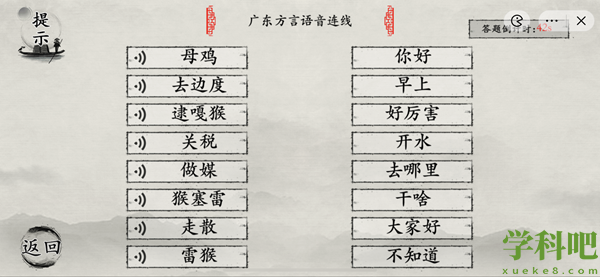 提示
广东方言语音连线
答题倒计时:42s
母鸡
你好
去边度
早上
逮嘎猴
好厉害
关税
开水
做媒
去哪里
猴塞雷
干啥
走散
大家好
雷猴
不知道
返回
学科吧
xueke8.com